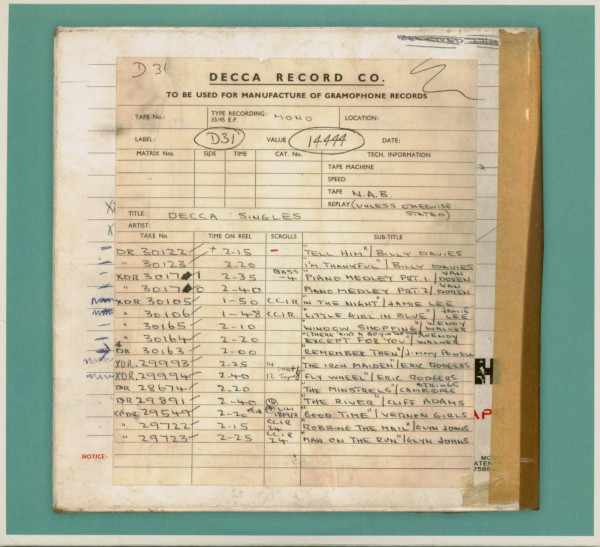 D 31
DECCA RECORD CO.
TO BE USED FOR MANUFACTURE OF GRAMOPHONE RECORDS
TAPE No.: TYPE RECORDING: 33/45 E.P. MONO LOCATION:
LABEL: D31 VALUE 14444 DATE:
MATRIX No. SIDE TIME CAT. No. TECH. INFORMATION
TAPE MACHINE
SPEED
TAPE N.A.B
REPLAY (UNLESS OTHERWISE STATED)
TITLE: DECCA SINGLES
ARTIST:
TAKE No. TIME ON REEL SCROLLS SUB-TITLE
DR 30122 + 2-15 - "TELL HIM"/BILLY DAVIES
" 30123 2-20 I'M THANKFUL"/BILLY DAVIES
XDR 30171 2-35 BASS -4 "PIANO MEDLEY PRT. 1/VAN DOREN
30170 2-40 PIANO MEDLEY PRT 2/VAN DOREN
XDR 30105 1-50 CCIR "IN THE NIGHT"/JAMIE LEE
" 30106 1-48 CCIR "LITTLE GIRL IN BLUE"/JAMIE LEE
" 30165 2-10 WINDOW SHOPPING/WENDY WALKER
" 30164 2-20 EXCEPT FOR YOU"/WENDY WALKER
DR 30163 2-00 REMEMBER THEN"/JIMMY POWELL
XDR. 29993 2-25 THE IRON MAIDEN/ERIC RODGERS
XDR. 29994 2-40 FLY WHEEL"/ERIC RODGERS
DR 28674 2.20 THE MINSTRELS/CAMBRIDGE STRINGS
DR 29891 2-40 "THE RIVER"/CLIFF ADAMS
29549 2-20 "GOOD TIME"/VERNON GIRLS
" 29722 2-15 CCIR 24 ROBBING THE MAIL"/GLYN JOHNS
" 29723 2-25 CCIR 24. "MAN ON THE RUN"/GLYN JOHNS
NOTICE: